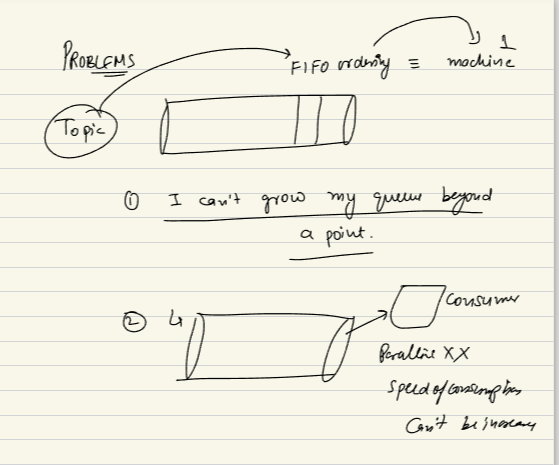 PROBLEMS
FIFO ordering ≡ machine 1
Topic
① I can't grow my queue beyond
a point.
② 4
Consumer
XX
Speed of consumption
Can't be increase